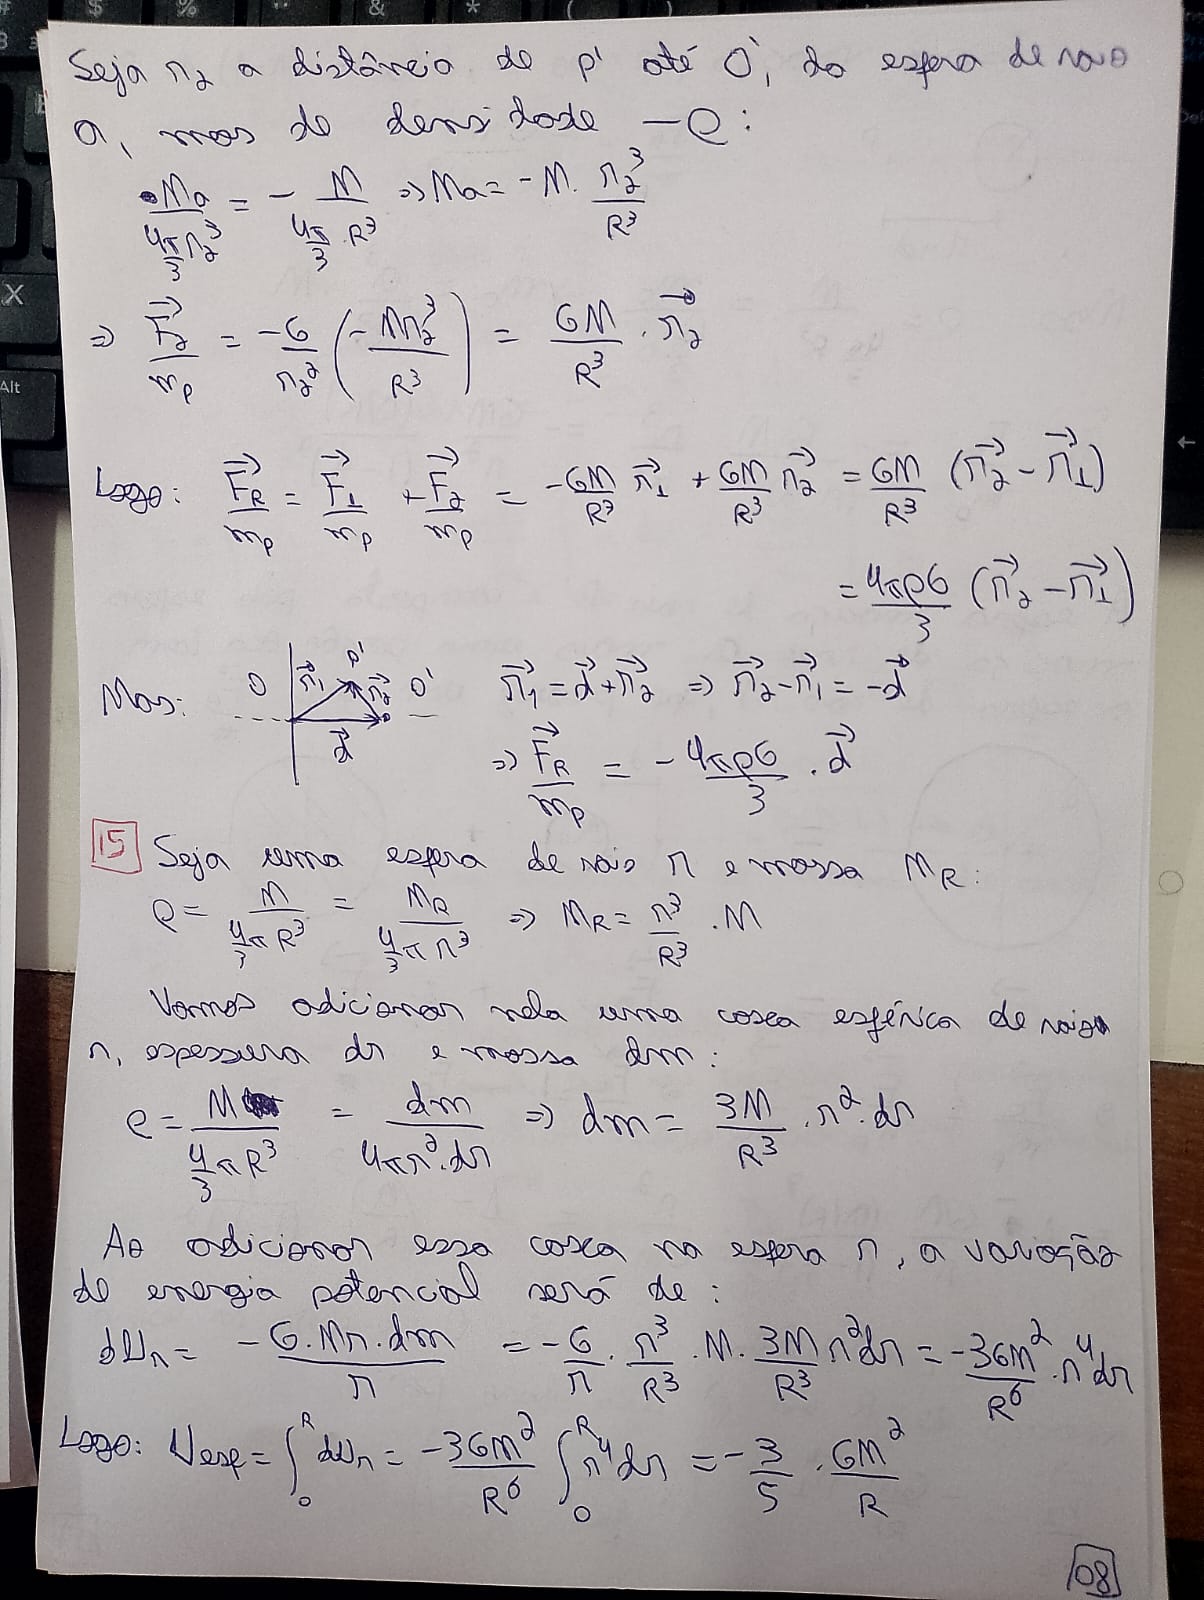 Seja r₂ a distância de p' até O', da esfera de raio
a, mas de densidade -ρ:
Ma/(4π/3 r₂³) = - M/(4π/3 · R³) => Ma = -M · r₂³/R³
=> F⃗₂/mp = -G/r₂² (-Mr₂³/R³) = GM/R³ · r⃗₂
Logo: F⃗R/mp = F⃗₁/mp + F⃗₂/mp = -GM/R³ r⃗₁ + GM/R³ r⃗₂ = GM/R³ (r⃗₂ - r⃗₁)
= 4πρG/3 (r⃗₂ - r⃗₁)
Mas: O r⃗₁ p' r⃗₂ O' d⃗ r⃗₁ = d⃗ + r⃗₂ => r⃗₂ - r⃗₁ = -d⃗
=> F⃗R/mp = - 4πρG/3 · d⃗
15 Seja uma esfera de raio r e massa MR:
ρ = M/(4/3 π R³) = MR/(4/3 π r³) => MR = r³/R³ · M
Vamos adicionar nela uma casca esférica de raio
r, espessura dr e massa dm:
ρ = M/(4/3 π R³) = dm/(4πr² · dr) => dm = 3M/R³ · r² · dr
Ao adicionar essa casca na esfera r, a variação
de energia potencial será de:
dUr = -G · Mr · dm/r = -G/r · r³/R³ · M · 3M/R³ r² dr = -3GM²/R⁶ · r⁴ dr
Logo: Uesf = ∫₀ᴿ dUr = -3GM²/R⁶ ∫₀ᴿ r⁴ dr = -3/5 · GM²/R
08